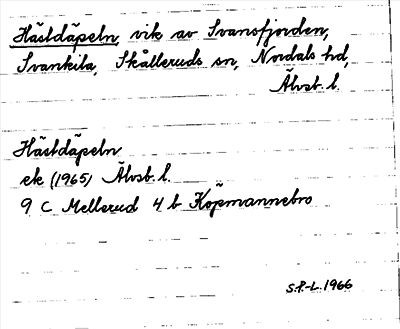 Hästdäpeln, vik av Svansfjorden,
Svankila, Skålleruds sn, Nordals hd,
Älvsb. l.
Hästdäpeln
ek (1965) Älvsb. l.
9 C Mellerud 4 b Köpmannebro
S.P-L. 1966